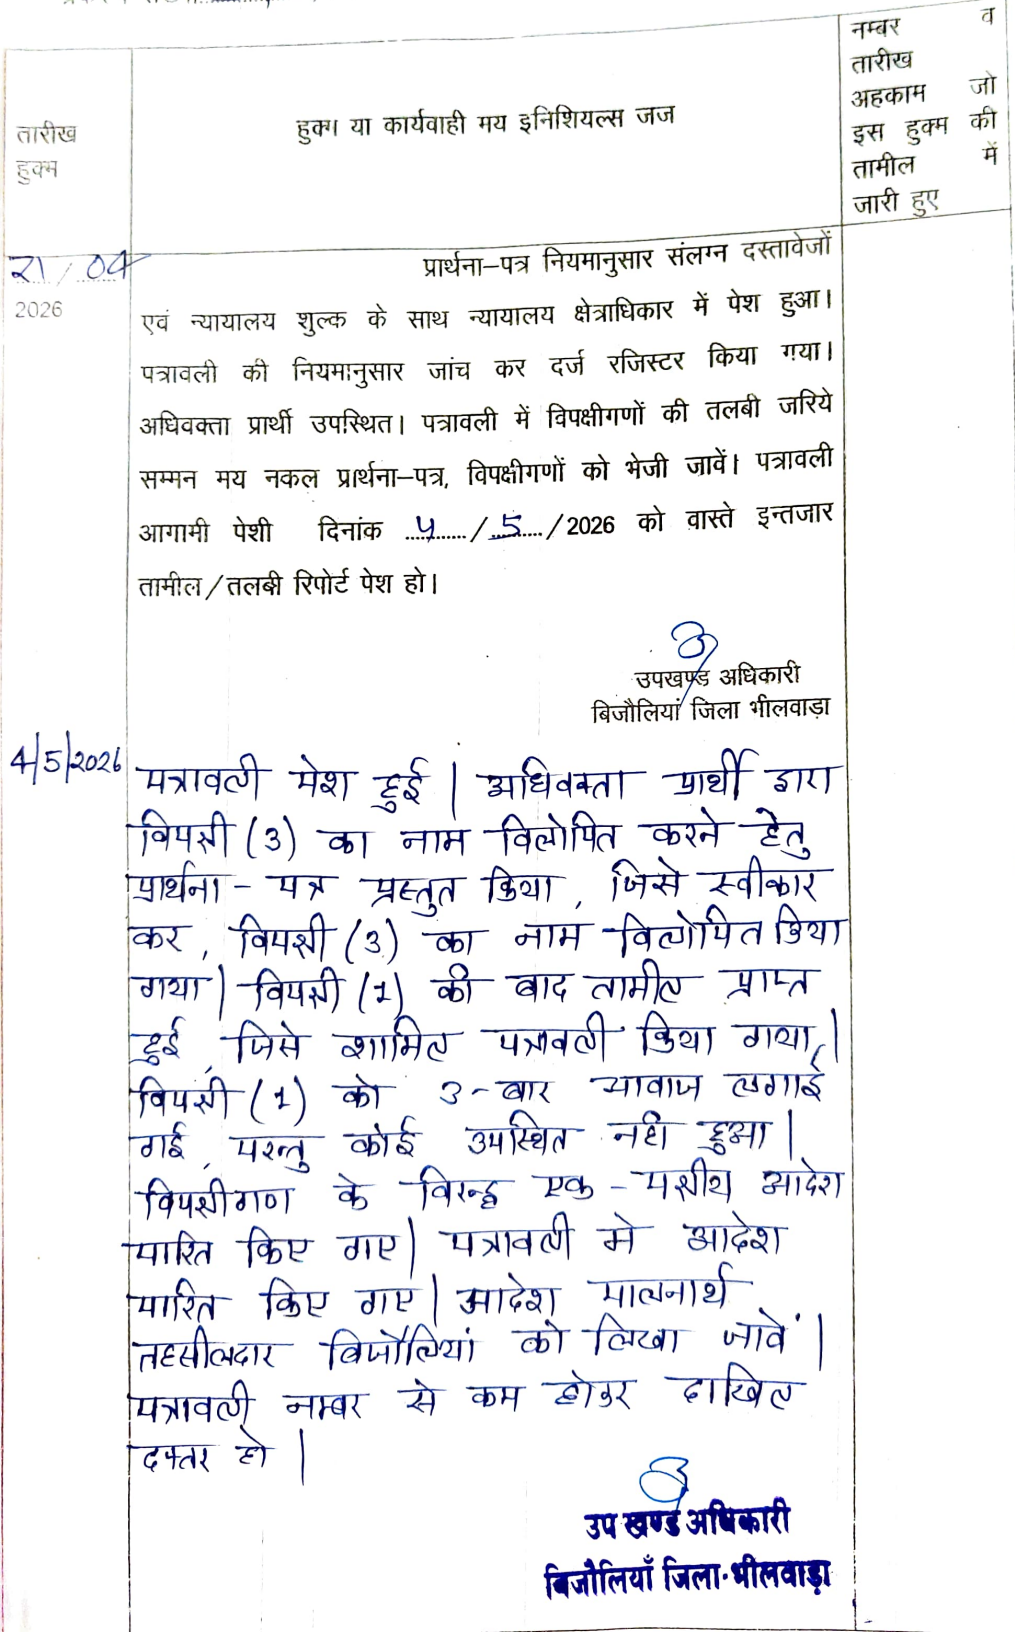 नम्बर व
तारीख
अहकाम जो
इस हुक्म की
तामील में
जारी हुए
हुक्म या कार्यवाही मय इनिशियल्स जज
तारीख
हुक्म
21/04
2026
प्रार्थना–पत्र नियमानुसार संलग्न दस्तावेजों
एवं न्यायालय शुल्क के साथ न्यायालय क्षेत्राधिकार में पेश हुआ।
पत्रावली की नियमानुसार जांच कर दर्ज रजिस्टर किया गया।
अधिवक्ता प्रार्थी उपस्थित। पत्रावली में विपक्षीगणों की तलबी जरिये
सम्मन मय नकल प्रार्थना–पत्र, विपक्षीगणों को भेजी जावें। पत्रावली
आगामी पेशी दिनांक 4/5/2026 को वास्ते इन्तजार
तामील/तलबी रिपोर्ट पेश हो।
उपखण्ड अधिकारी
बिजौलियां जिला भीलवाड़ा
4/5/2026
पत्रावली पेश हुई | अधिवक्ता प्रार्थी द्वारा
विपक्षी (3) का नाम विलोपित करने हेतु
प्रार्थना - पत्र प्रस्तुत किया, जिसे स्वीकार
कर, विपक्षी (3) का नाम विलोपित किया
गया | विपक्षी (1) की बाद तामील प्राप्त
हुई, जिसे शामिल पत्रावली किया गया |
विपक्षी (1) को 3-बार आवाज लगाई
गई, परन्तु कोई उपस्थित नही हुआ |
विपक्षीगण के विरुद्ध एक - पक्षीय आदेश
पारित किए गए | पत्रावली मे आदेश
पारित किए गए | आदेश पालनार्थ
तहसीलदार बिजौलियां को लिखा जावें |
पत्रावली नम्बर से कम होकर दाखिल
दफ्तर हो |
उप खण्ड अधिकारी
बिजौलियाँ जिला-भीलवाड़ा